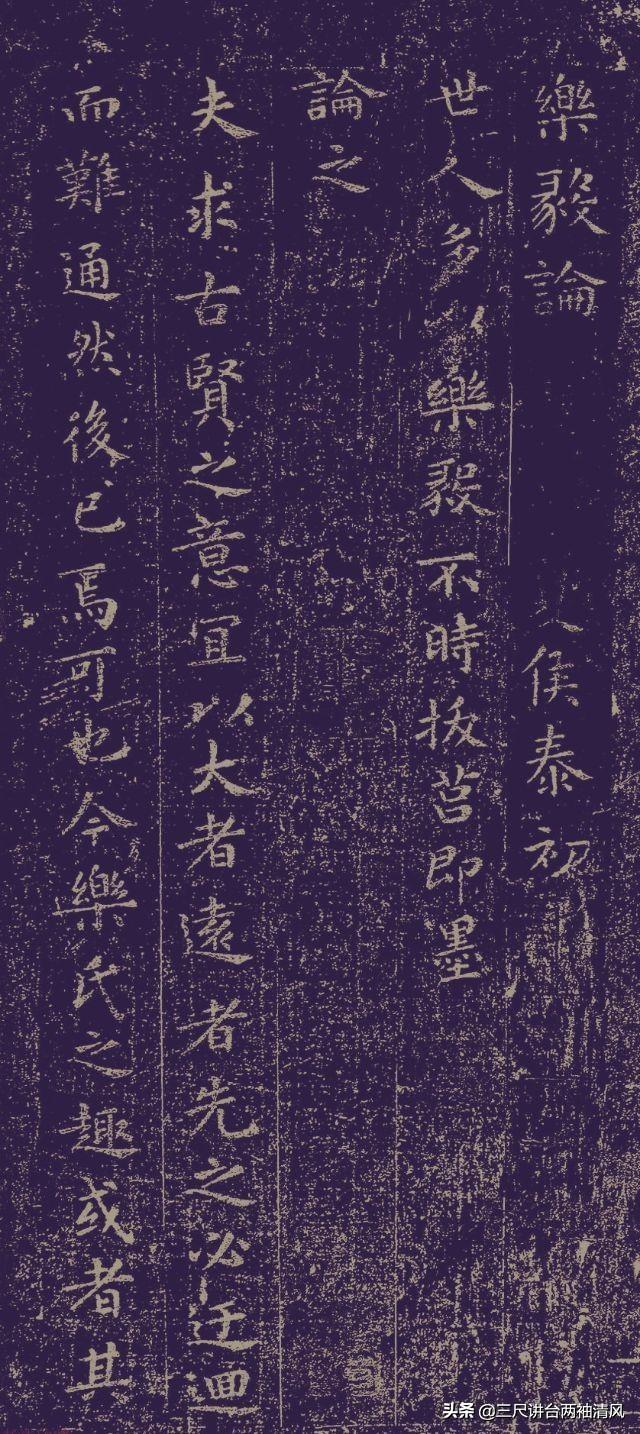 樂毅論 侯泰初
世人多以樂毅不時拔莒即墨
論之
夫求古賢之意宜以大者遠者先之必迂迴
而難通然後已焉可也今樂氏之趣或者其
头条 @三尺讲台两袖清风